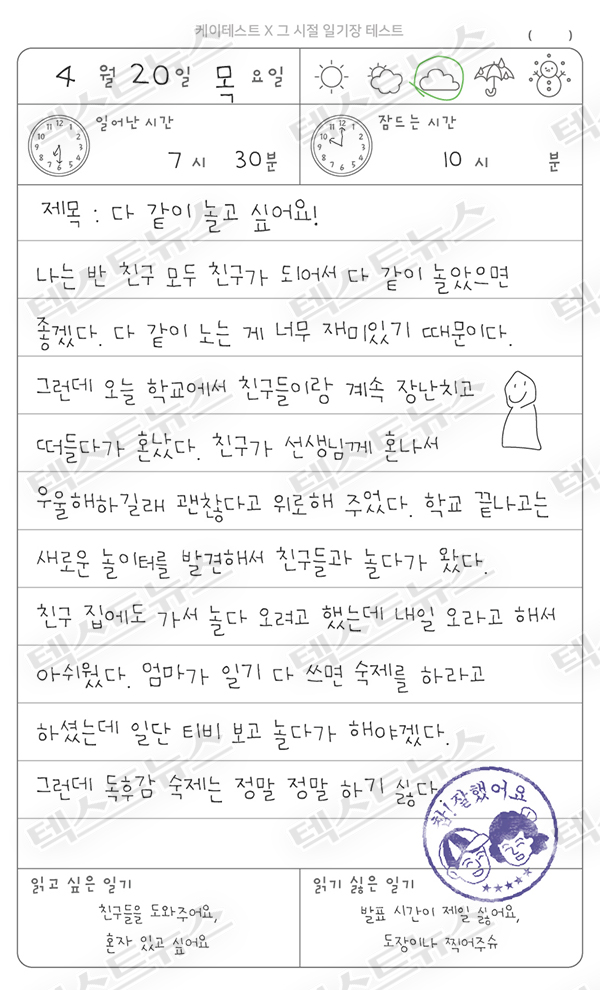 케이테스트 X 그 시절 일기장 테스트
( )
4 월 20 일 목 요일
일어난 시간
7 시 30 분
잠드는 시간
10 시 분
제목 : 다 같이 놀고 싶어요!
나는 반 친구 모두 친구가 되어서 다 같이 놀았으면
좋겠다. 다 같이 노는 게 너무 재미있기 때문이다.
그런데 오늘 학교에서 친구들이랑 계속 장난치고
떠들다가 혼났다. 친구가 선생님께 혼나서
우울해하길래 괜찮다고 위로해 주었다. 학교 끝나고는
새로운 놀이터를 발견해서 친구들과 놀다가 왔다.
친구 집에도 가서 놀다 오려고 했는데 내일 오라고 해서
아쉬웠다. 엄마가 일기 다 쓰면 숙제를 하라고
하셨는데 일단 티비 보고 놀다가 해야겠다.
그런데 독후감 숙제는 정말 정말 하기 싫다
참! 잘했어요
읽고 싶은 일기
친구들을 도와주어요,
혼자 있고 싶어요
읽기 싫은 일기
발표 시간이 제일 싫어요,
도장이나 찍어주슈
텍스트뉴스